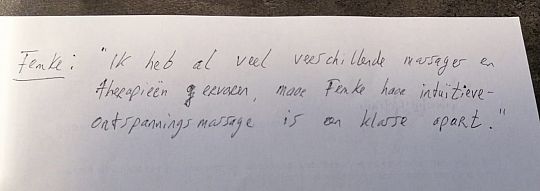 Femke: "Ik heb al veel verschillende massages en
therapieën gervaren, maar Femke haar intuïtieve-
ontspanningsmassage is een klasse apart."